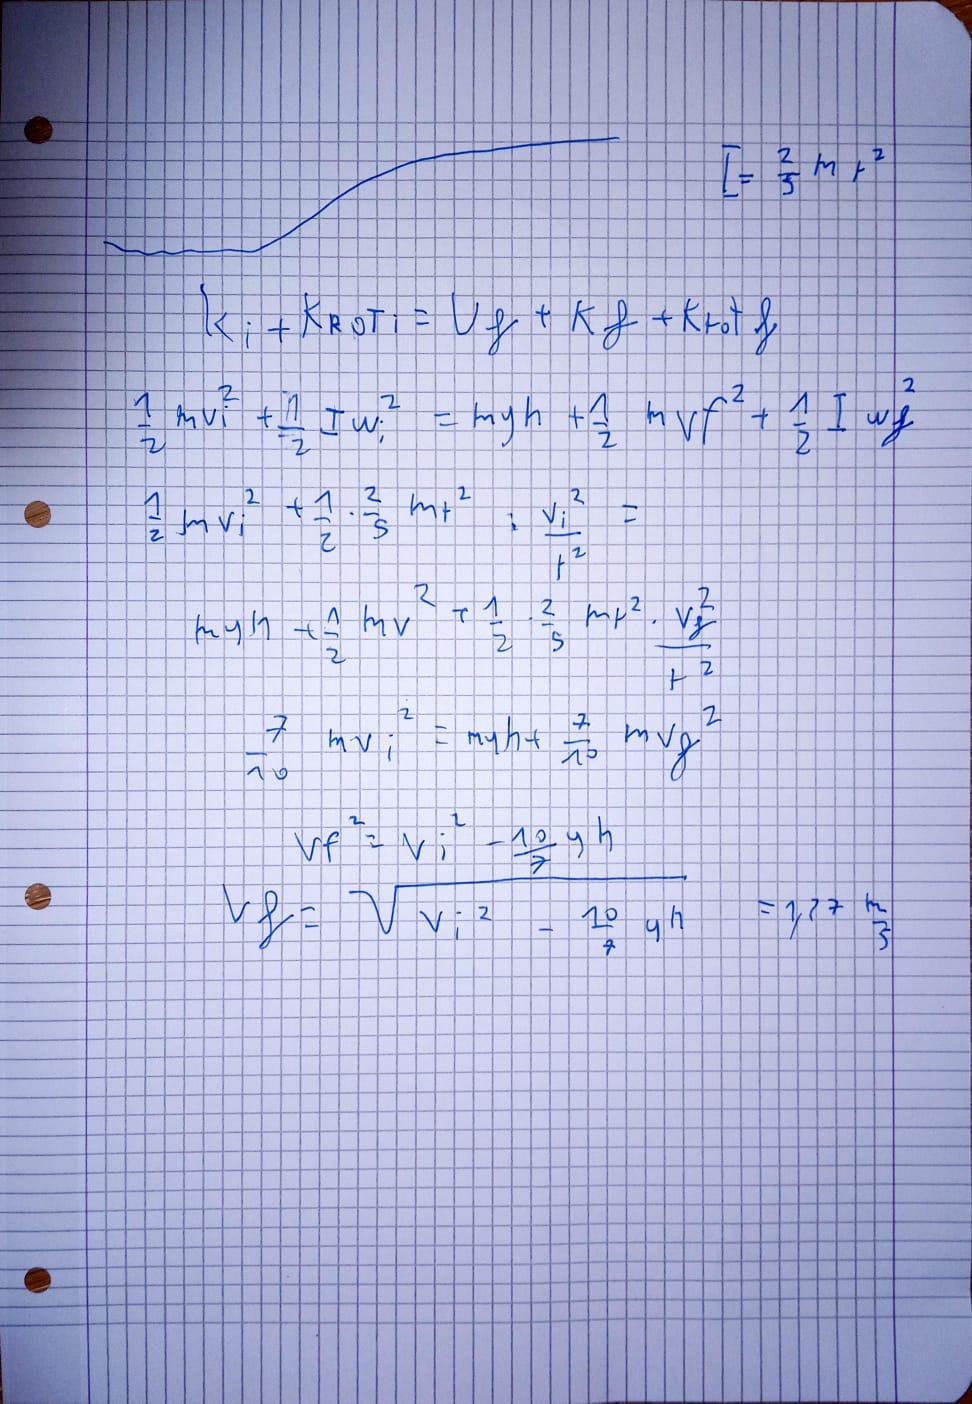 I = 2/5 m r²
Ki + KROTi = Uf + Kf + Krot f
1/2 mvi² + 1/2 I wi² = mgh + 1/2 m vf² + 1/2 I wf²
1/2 mvi² + 1/2 · 2/5 mr² · vi²/r² =
mgh + 1/2 mv² + 1/2 · 2/5 mr² · vf²/r²
7/10 mvi² = mgh + 7/10 mvf²
vf² = vi² - 10/7 gh
vf = √(vi² - 10/7 gh) = 1,27 m/s